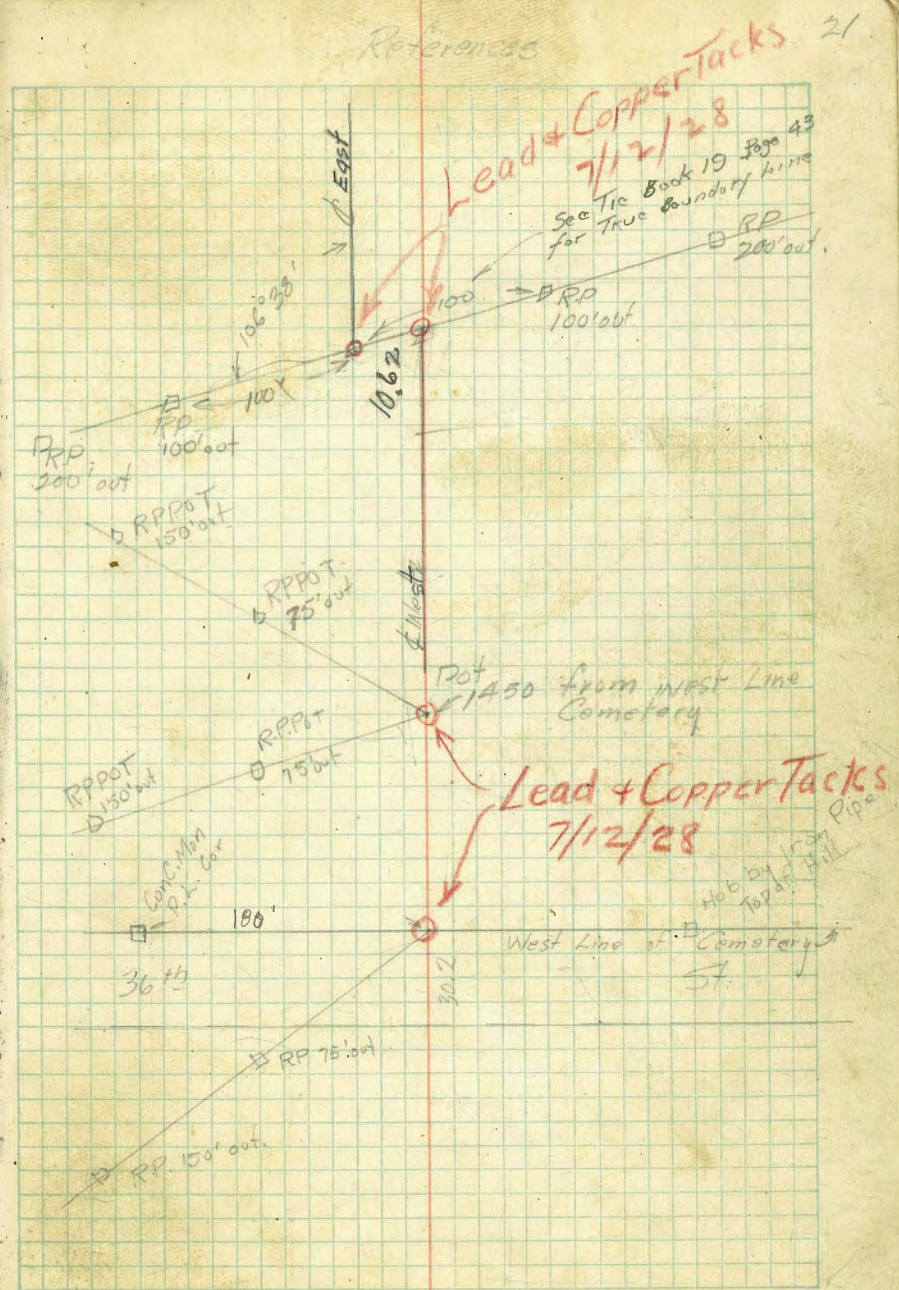 21
References
Lead & Copper Tacks
7/12/28
East
See Tie Book 19 Page 43
for True Boundary Line
RP
200' out.
100
RP
100' out
106°38'
100
10.62
RP
100' out
RP
200' out
RPPOT
150' out
RPPOT
75' out
West
Pot
1450 from West Line
Cemetery
R.P.Pot
75' out
RPPOT
150' out
Lead & Copper Tacks
7/12/28
Conc. Mon
P.L. Cor
Hob by Iron Pipe
Top of Hill
180'
West Line of Cemetery
36th
St.
30.2
RP 75' out
RP. 150' out.